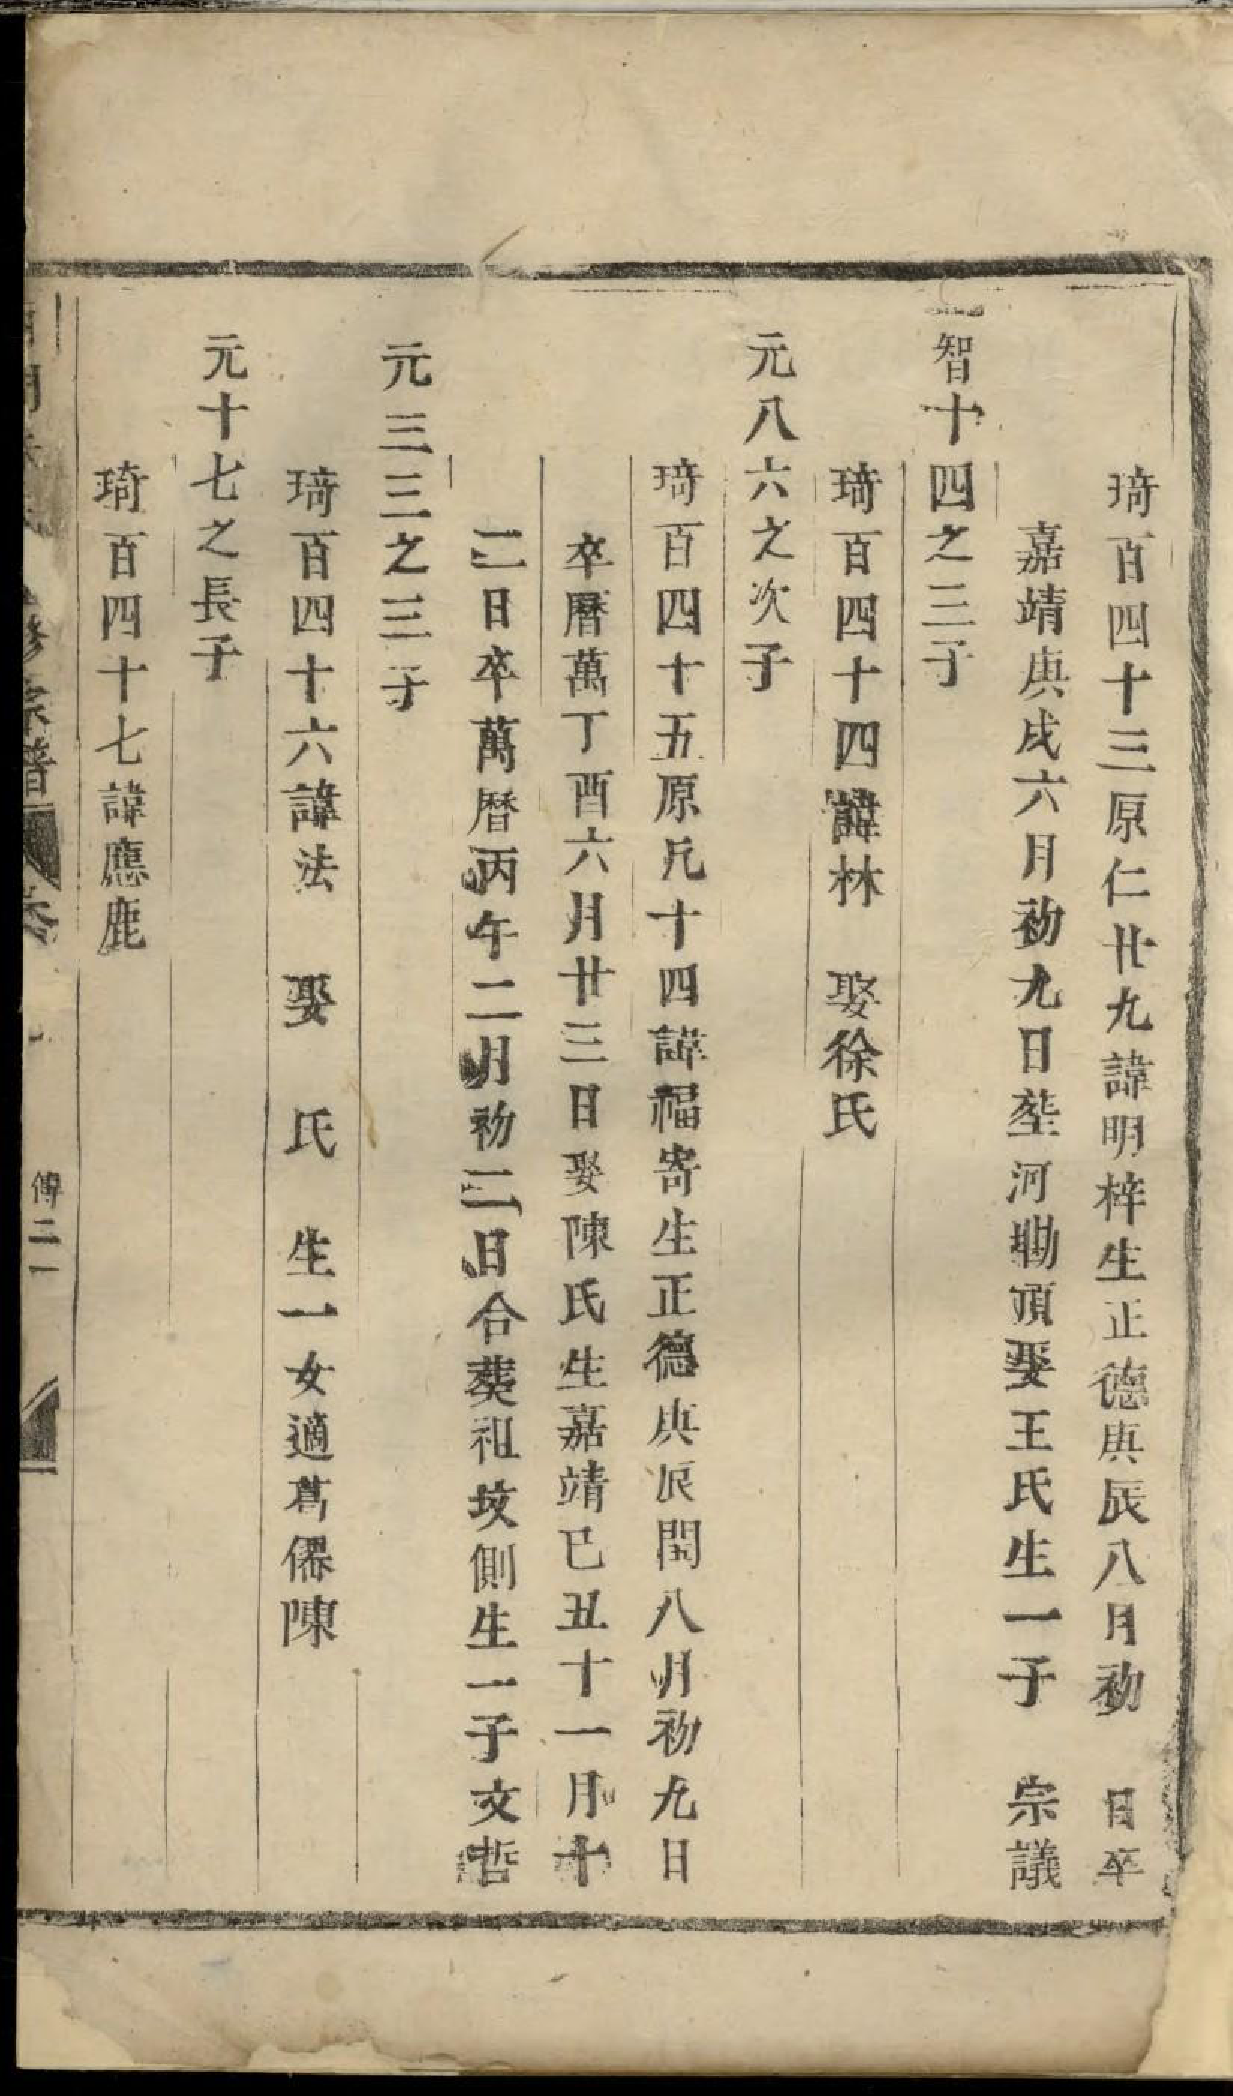 琦百四十三原仁廿九諱明梓生正德庚辰八月初　日卒
嘉靖庚戌六月初九日塟河勘頂娶王氏生一子　宗議
智十四之三子
琦百四十四諱林　娶徐氏
元八六之次子
琦百四十五原凡十四諱福寄生正德庚辰閏八月初九日
卒曆萬丁酉六月廿三日娶陳氏生嘉靖已丑十一月十
二日卒萬曆丙午二月初二日合葬祖坟側生一子文哲
元三三之三子
琦百四十六諱法　娶　氏　生一女適葛傑陳
元十七之長子
琦百四十七諱應鹿
修宗譜　卷　傳二一